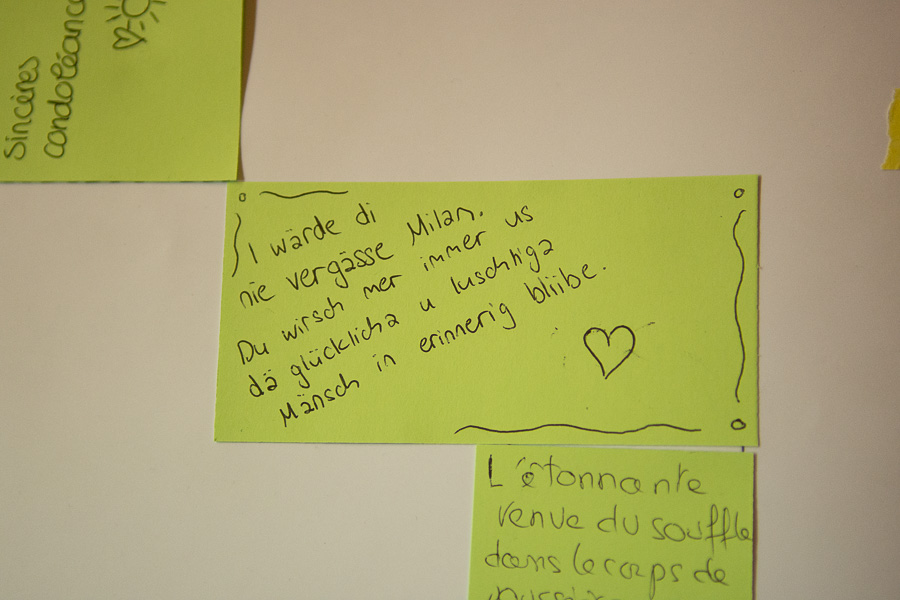 Sincères
condoléance
I wärde di
nie vergässe Milan.
Du wirsch mer immer us
dä glücklicha u luschtiga
Mänsch in erinnerig bliibe.
L'étonnante
venue du souffle
dans le corps de